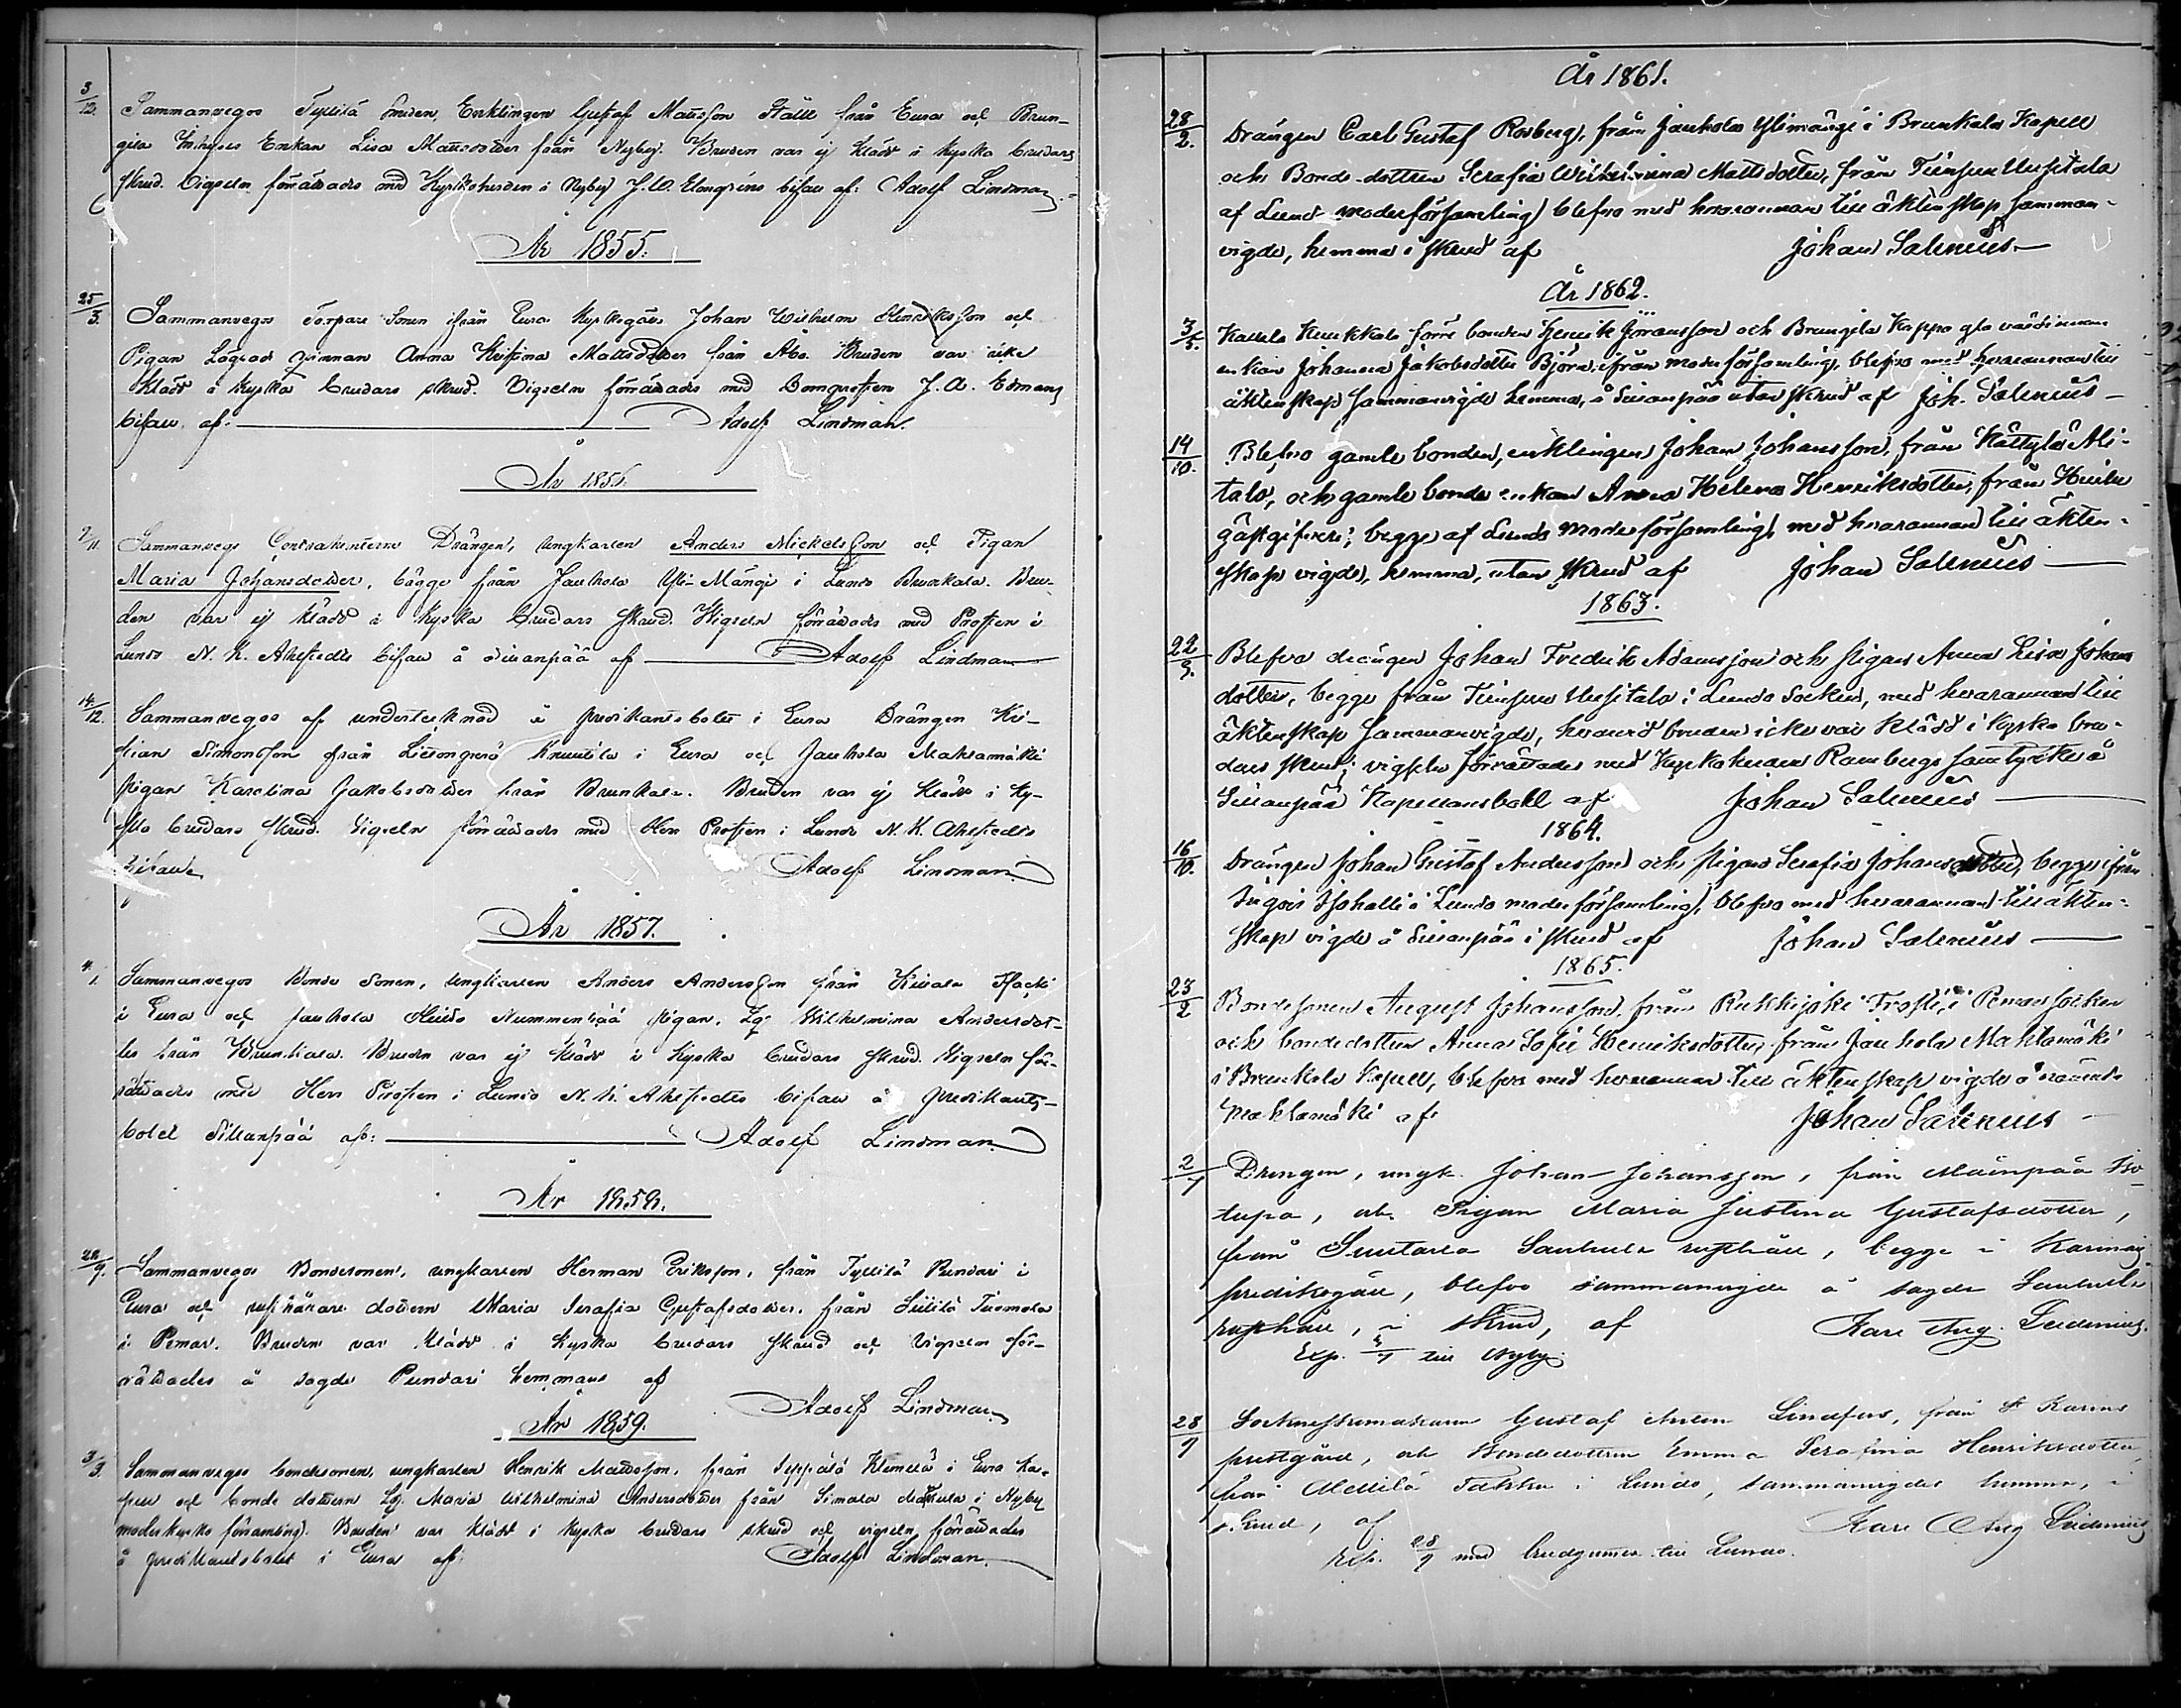 3/12. Sammanvegos Tyllilä Smeden, Enklingen Gustaf Mattsson Ståhl från Eura och Brun-
gila Inhyses Enkan Lisa Mattsdotter från Nyby. Bruden var ej klädd i kyska brudars
skrud. Vigseln förrättades med Kyrkoherden i Nyby J. W. Elmgréns bifall af: Adolf Lindman.
År 1855.
25/3. Sammanvegos Torpare Sonen ifrån Eura Kyrkogård Johan Wilhelm Henriksson och
Pigan Lagrad qvinnan Anna Kristina Mattsdotter från Åbo. Bruden var icke
klädd i kyska brudars skrud. Vigseln förrättades med Domprosten J. A. Edmans
bifall af: Adolf Lindman.
År 1856.
9/11. Sammanvegs Contrahenterne Drängen, ungkarlen Anders Mickelsson och Pigan
Maria Johansdotter, bägge från Jauhola Yli-Mängi i Lundo Brunkala. Bru-
den var ej klädd i kyska brudars skrud. Vigseln förrättades med Prosten i
Lundo N. K. Ahlstedts bifall å Sillanpää af Adolf Lindman
14/12. Sammanvegos af undertecknad å predikantsbolet i Eura Drängen Kri-
stian Simonsson från Knuutila i Eura och Jauhola Mahlamäki
pigan Karolina Jakobsdotter från Brunkala. Bruden var ej klädd i ky-
ska brudars skrud. Vigseln förrättades med Herr Prosten i Lundo N. K. Ahlstedts
bifall Adolf Lindman
År 1857.
4/1. Sammanvegos Bonde Sonen, ungkarlen Anders Andersson från Kivala
i Eura och Jauhola Heido Nummenpää pigan, Lg: Wilhelmina Andersdot-
ter från Brunkala. Bruden var ej klädd i kyska brudars skrud. Vigseln för-
rättades med Herr Prosten i Lundo N. K. Ahlstedts bifall å predikants-
bolet Sillanpää af: Adolf Lindman
År 1858.
28/9. Sammanvegos Bondesonen, ungkarlen Herman Eriksson, från Tyllilä Pundari i
Eura och rusthållare dottern Maria Serafia Gustafsdotter, från Tuomola
i Pemar. Bruden var klädd i kyska brudars skrud och vigseln för-
rättades å sagde Pundari hemmans af Adolf Lindman
År 1859.
3/3. Sammanvegos bondesonen, ungkarlen Henrik Mattsson, från Seppälä Klemelä i Eura ka-
pell och bonde dottern Lg. Maria Wilhelmina Andersdotter från Simala Mattula i Nyby
moderkyrko församling. Bruden var klädd i kyska brudars skrud och vigseln förrättades
å predikantsbolet i Eura af: Adolf Lindman.
År 1861.
28/2. Drängen Carl Gustaf Rosberg, från Jauhola Ylimängi i Brunkala Kapell
och Bonde-dottren Serafia Wilhelmina Mattsdotter, från Uusitalo
af Lundo moderförsamling, blefvo med hvarannan till äktenskap samman-
vigde, hemma i skrud af Johan Salenius
År 1862.
3/5. Kukkala förre bonden Henrik Göransson och Brungila Kappa gla värdinnan
enkan Johanna Jakobsdotter Björn, ifrån moderförsamling, blefvo med hvarannan till
äktenskap sammanvigde hemma, å Sillanpää utan skrud af Joh. Salenius
14/10. Blefvo gamle bonden, enklingen Johan Johansson, från Kättylä Ali-
talo, och gamle bonde enkan Anna Helena Henriksdotter, från
gästgifveri; begge af Lundo Moderförsamling, med hvarannan till äkten-
skap vigde, hemma, utan skrud af Johan Salenius
1863.
22/3. Blefvo drängen Johan Fredrik Adamsson och pigan Anna Lisa Johans
dotter, begge från Uusitalo i Lundo Socken, med hvarannan till
äktenskap sammanvigde, hvarvid bruden icke var klädd i kyska bru-
dars skrud; vigseln förrättades med Kyrkoherden Rambergs samtycke å
Sillanpää Kapellansbohl af Johan Salenius
1864.
16/10. Drängen Johan Gustaf Andersson och pigan Serafia Johansdotter, begge ifrån
i Lundo moderförsamling, blefvo med hvarannan till äkten-
skap vigde å Sillanpää i skrud af Johan Salenius
1865.
23/2 Bondesonen August Johansson, från Rukkijoki i Pemar socken
och bondedottren Anna Sofie Henriksdotter, från Jauhola Mahlamäki
i Brunkala Kapell, blefvo med hvarannan till äktenskap vigde å nämde
Mahlamäki af Johan Salenius
2/7 Drengen, ungk. Johan Johansson, från Mäenpää Iso-
tupa, och Pigan Maria Justina Gustafsdotter,
från Suutarla Sauhula rusthåll, begge i Karinais
predikogäll, blefvo sammanvigde å sagde Sauhula
rusthåll, i skrud, af Karl Aug. Lidenius.
Exp. 4/7 till Nyby.
28/9 Sockneskomakaren Gustaf Anton Lindfors, från St Karins
prestgård, och Bondedottren Emma Serafina Henriksdotter
från Mellilä i Lundo, sammanvigdes hemma, i
skrud, af Karl Aug Lidenius
exp. 28/9 med brudgummen till Lundo.